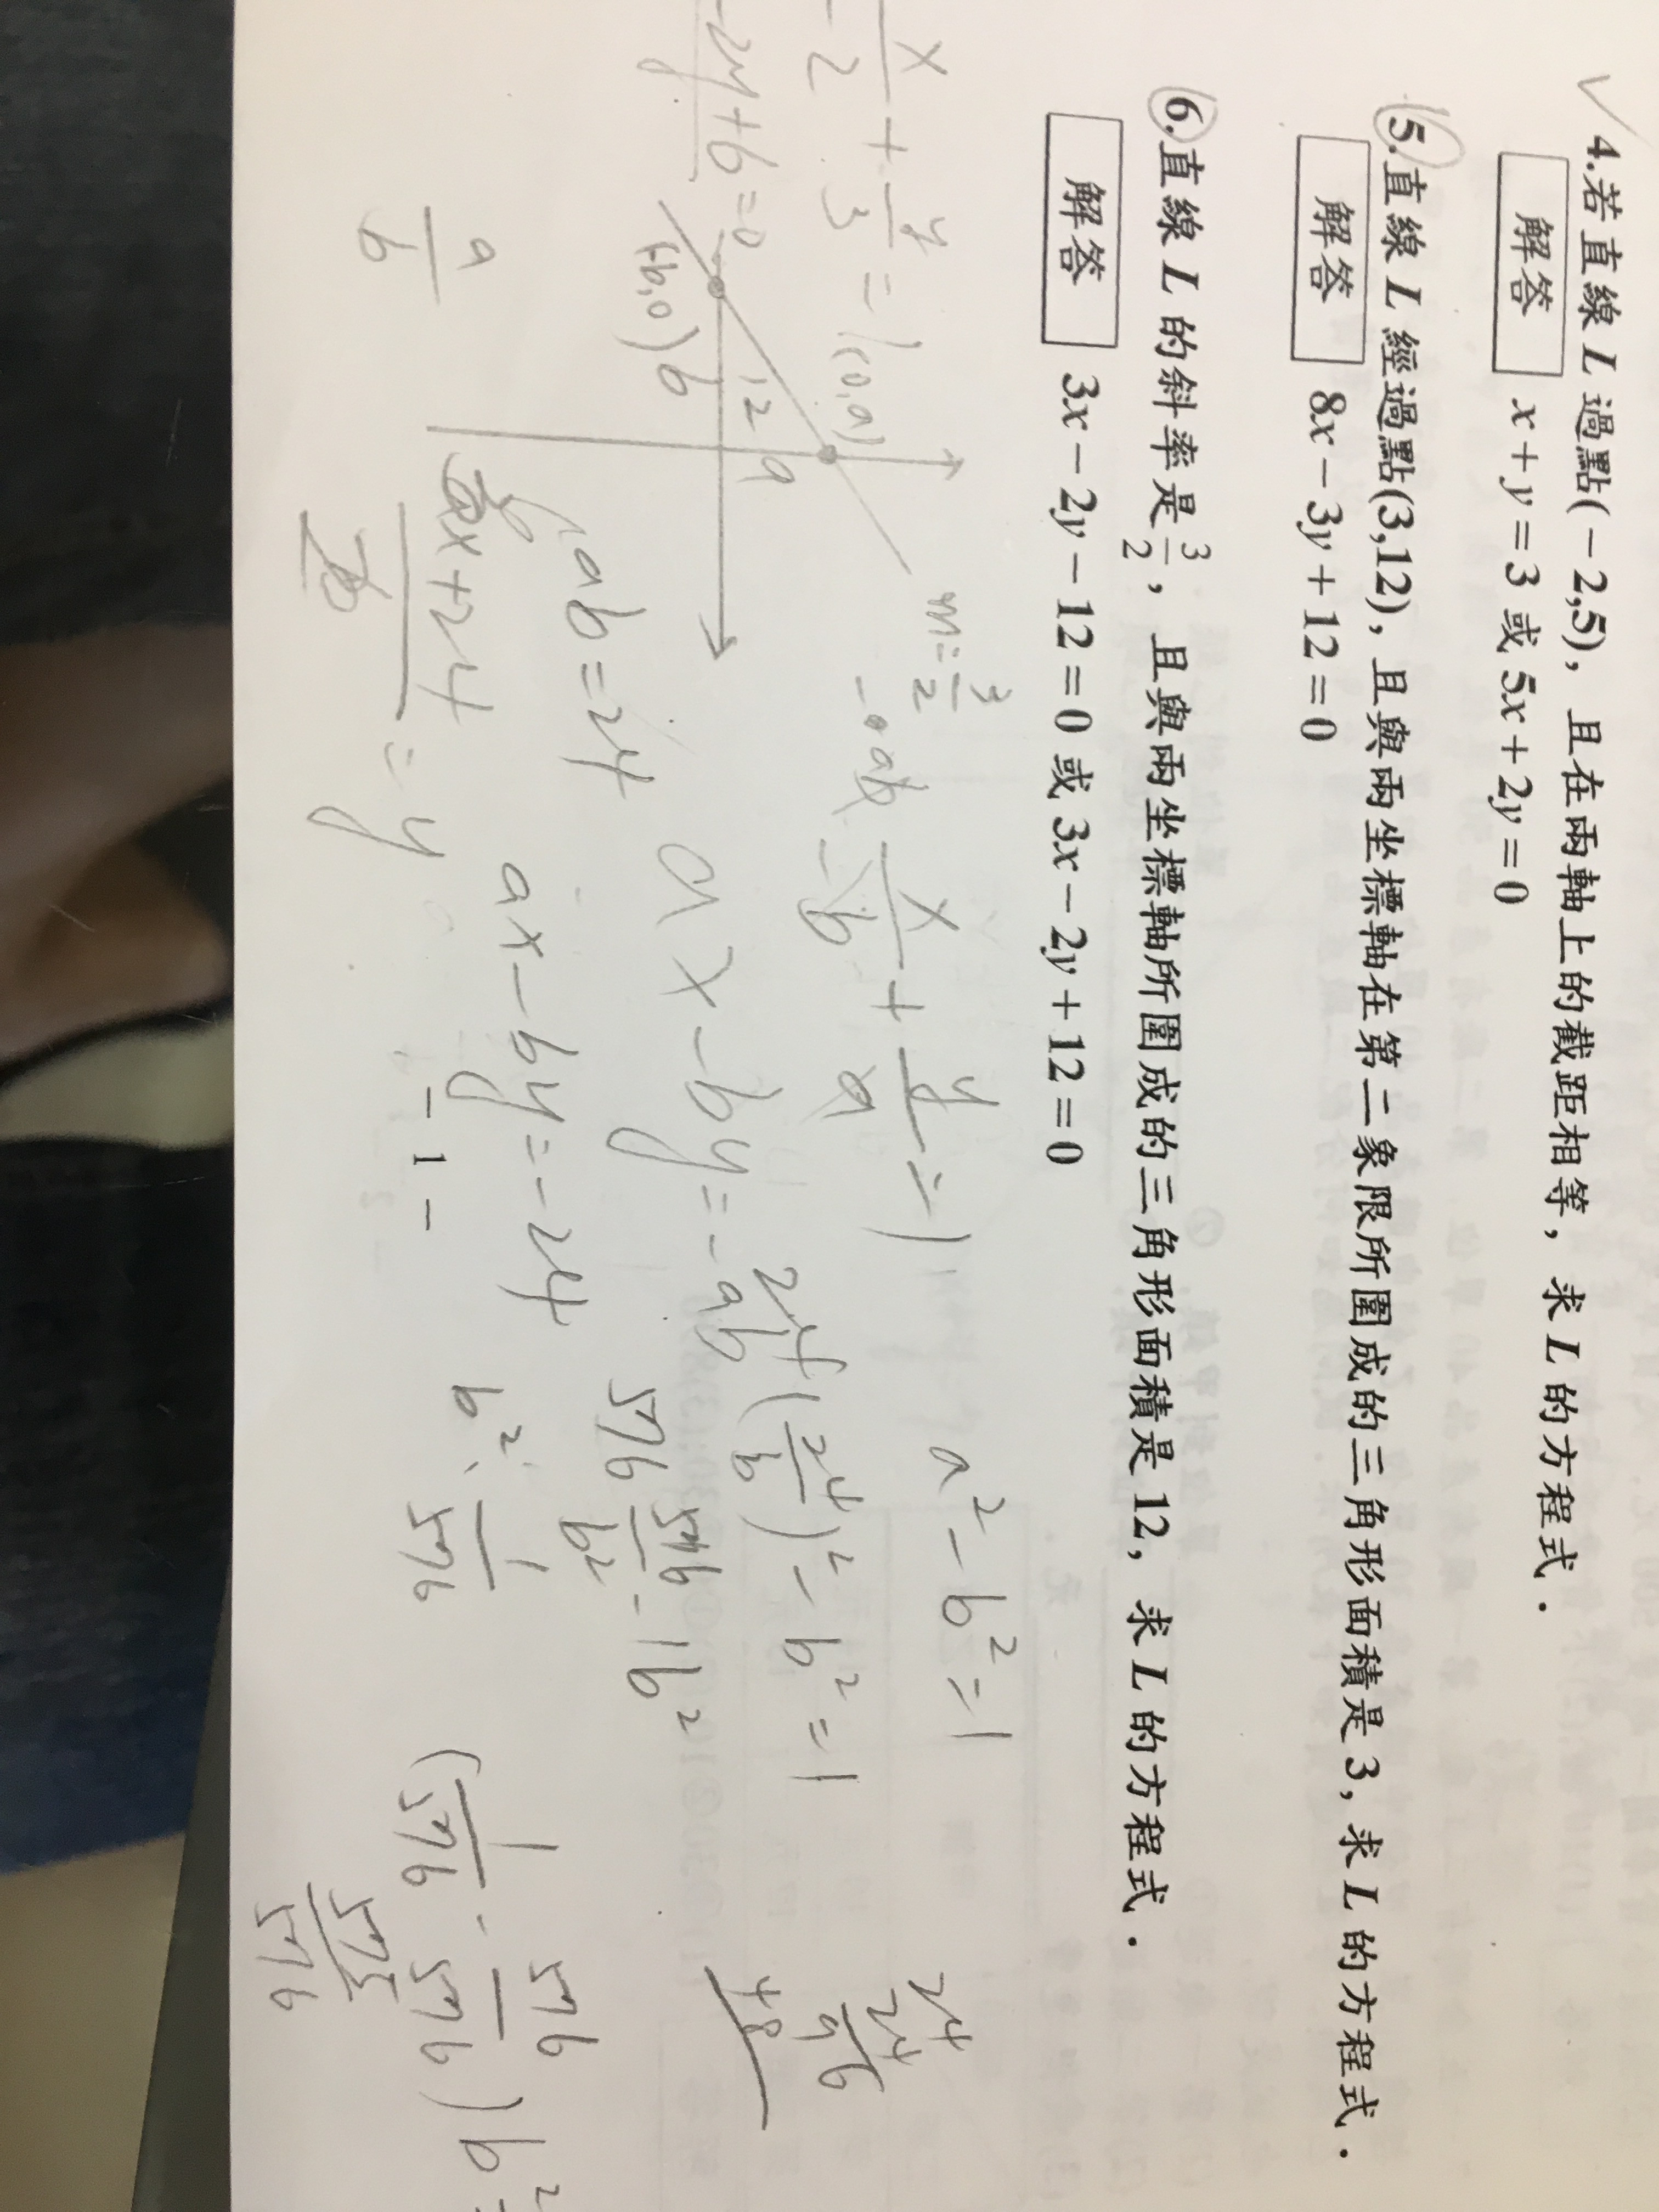 4.若直線 L 過點(−2,5)，且在兩軸上的截距相等，求 L 的方程式．
解答 x+y=3 或 5x+2y=0
5.直線 L 經過點(3,12)，且與兩坐標軸在第二象限所圍成的三角形面積是 3，求 L 的方程式．
解答 8x−3y+12=0
6.直線 L 的斜率是 3/2，且與兩坐標軸所圍成的三角形面積是 12，求 L 的方程式．
解答 3x−2y−12=0 或 3x−2y+12=0
x/-2 + y/3 = 1
-2y+6=0
(0,a)
m=3/2
12
a
b
x/-b + y/a = 1
a²-b²=1
24
24
96
48
ax-by=-ab
24(24/b)²-b²=1
ab=24
ax-by=-24
576
576/b²
-1b²
a/b
ax+24
=y
b²
1/576
(1/576 - 576/576)b²
575/576
− 1 −